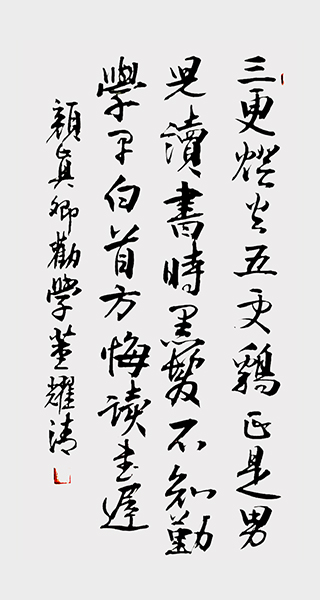 三更燈火五更鷄正是男
兒讀書時黑髮不知勤
學早白首方悔讀書遲
顔真卿勸學董耀清